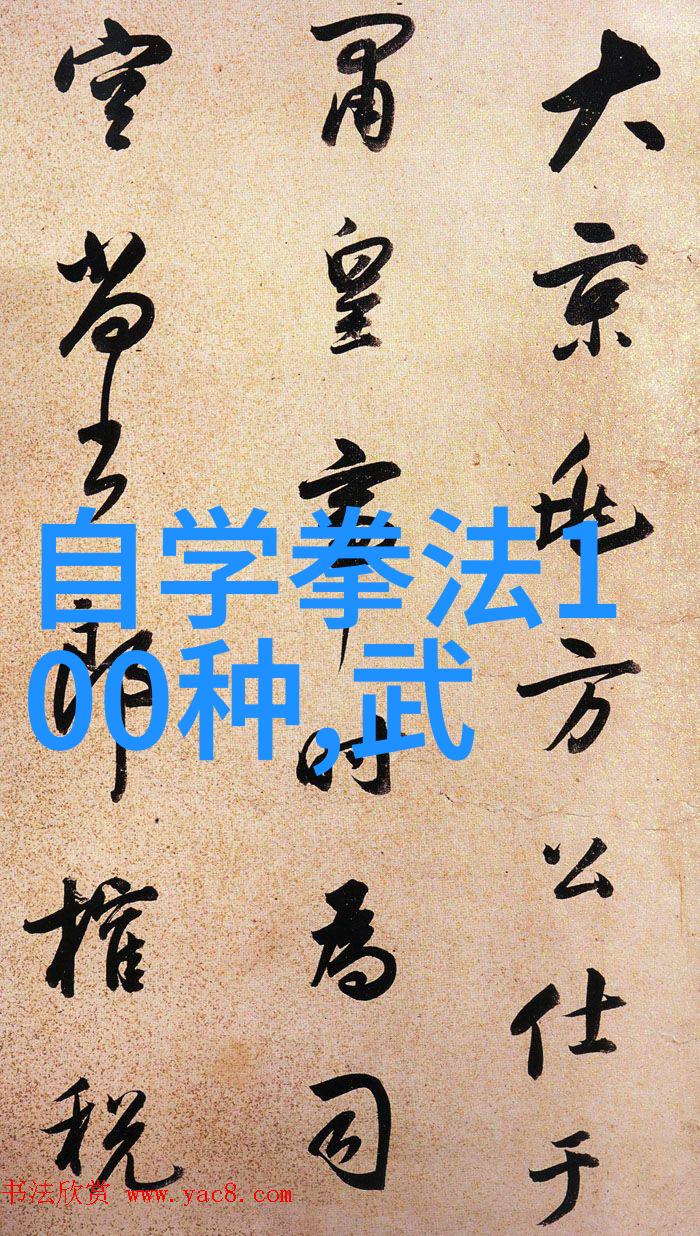 大京兆方公仕于
肅皇帝時為司
空尚書郎榷税
自学拳法1
00种,武
书法欣赏 www.yac8.com